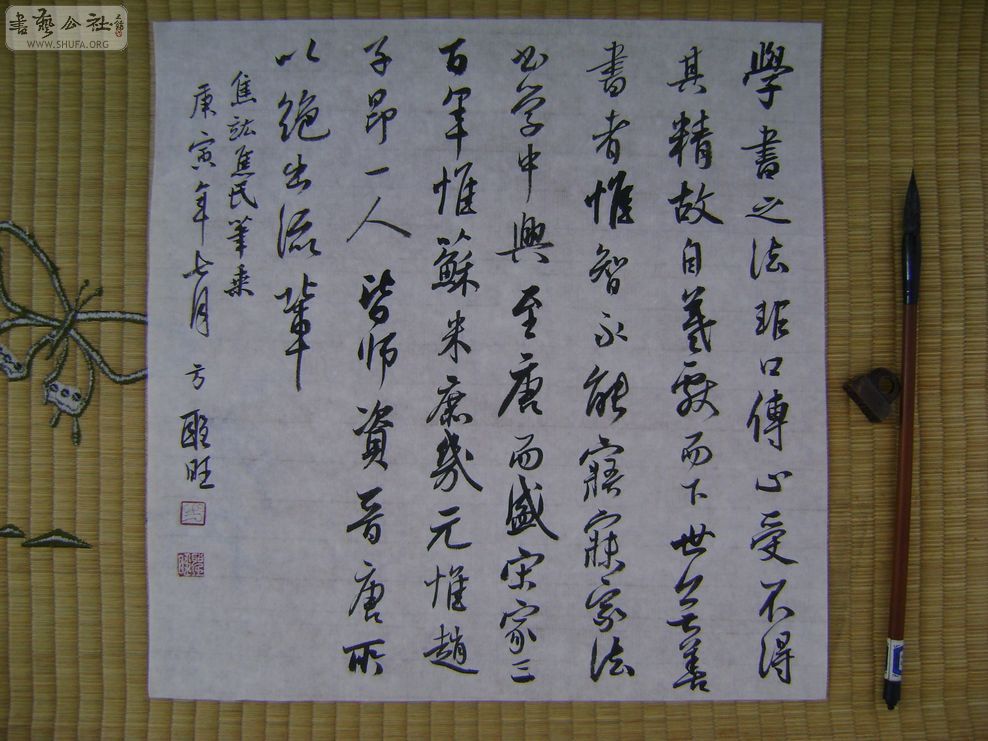 書藝公社
WWW.SHUFA.ORG
學書之法非口傳心受不得
其精故自羲献而下世无善
書者惟智永能寤寐家法
书学中興至唐而盛宋家三
百年惟蘇米庶幾元惟趙
子昂一人皆师資晋唐所
以絶出流輩
焦竑焦氏筆乘
庚寅年七月 方 旺